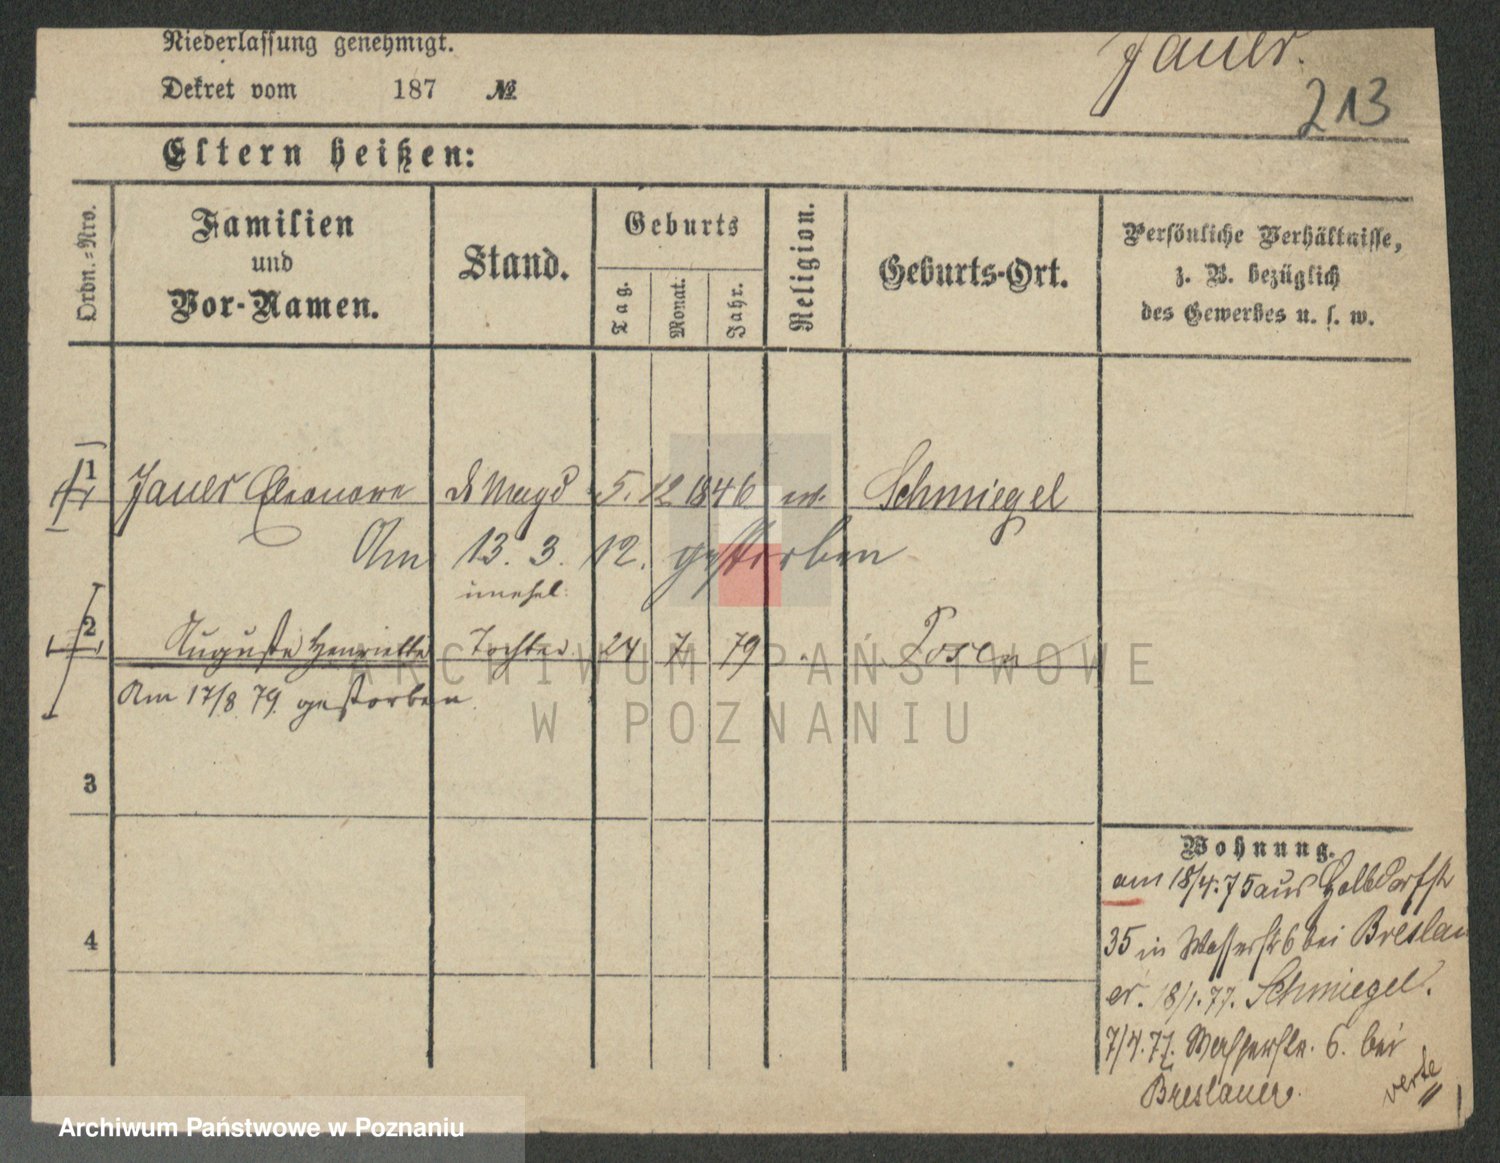 Niederlassung genehmigt.
Dekret vom 187 №
Jauer.
213
Eltern heißen:
Ordn.-Nro.
Familien
und
Vor-Namen.
Stand.
Geburts
Tag.
Monat.
Jahr.
Religion.
Geburts-Ort.
Persönliche Verhältnisse,
z. B. bezüglich
des Gewerbes u. s. w.
1 Jauer Eleonore d Magd 5. 12 1846 ev. Schmiegel
Am 13. 3. 12. gestorben
unehel.
2 Auguste Henriette Tochter 24 7 79 Posen
Am 17/8 79. gestorben
3
4
Wohnung.
am 18/4. 75 aus Halbdorfstr
35 in Wasserstr 6 bei Breslau
er. 8/1. 77. Schmiegel.
7/4. 77. Wasserstr. 6. bei
Breslauer.
verte
ARCHIWUM PAŃSTWOWE
W POZNANIU
Archiwum Państwowe w Poznaniu